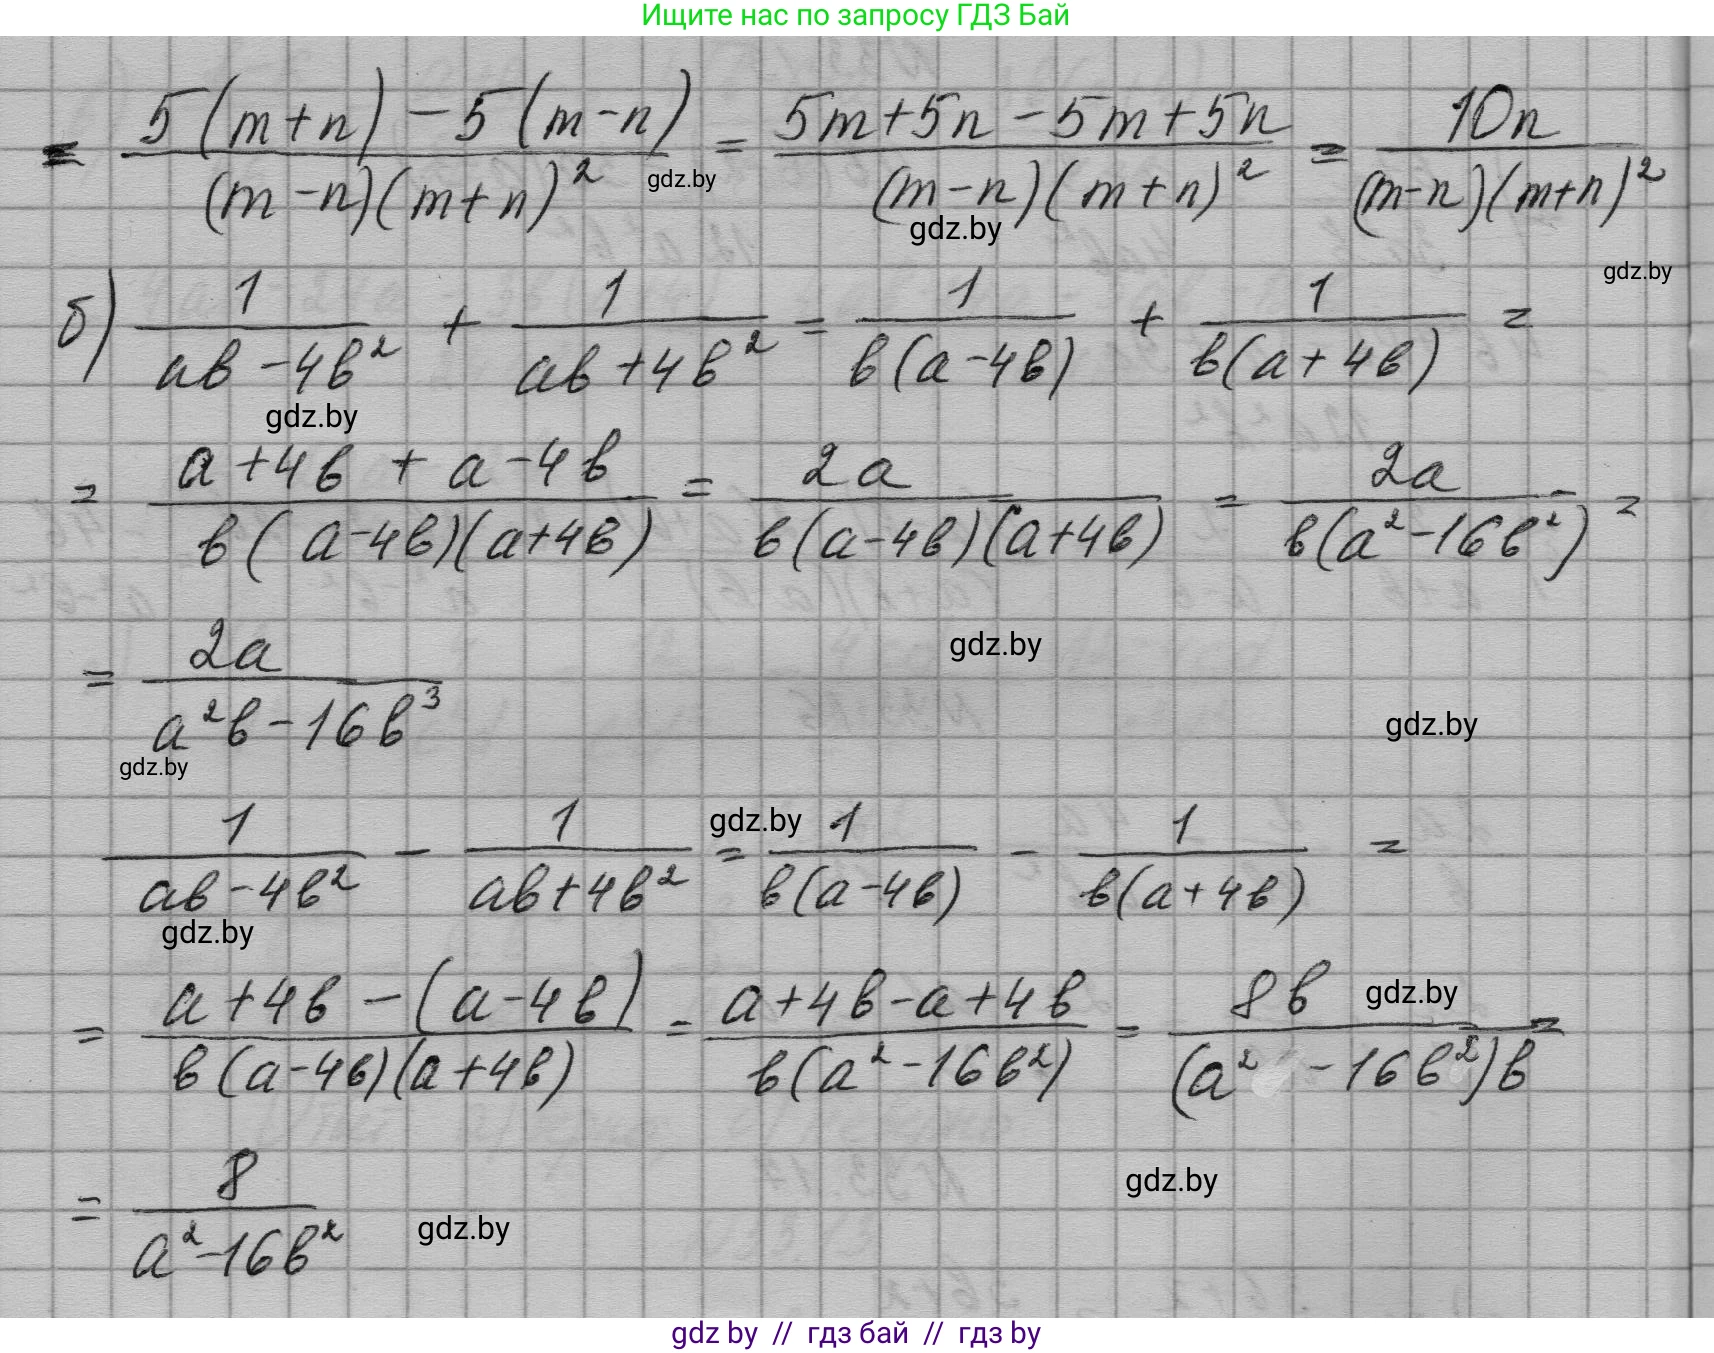 Ищите нас по запросу ГДЗ Бай
= 5(m+n) - 5(m-n) / (m-n)(m+n)² = 5m+5n-5m+5n / (m-n)(m+n)² = 10n / (m-n)(m+n)²
gdz.by
gdz.by
gdz.by
б) 1 / ab-4b² + 1 / ab+4b² = 1 / b(a-4b) + 1 / b(a+4b) =
gdz.by
= a+4b + a-4b / b(a-4b)(a+4b) = 2a / b(a-4b)(a+4b) = 2a / b(a²-16b²) =
= 2a / a²b-16b³
gdz.by
gdz.by
gdz.by
1 / ab-4b² - 1 / ab+4b² = 1 / b(a-4b) - 1 / b(a+4b) =
gdz.by
gdz.by
= a+4b-(a-4b) / b(a-4b)(a+4b) = a+4b-a+4b / b(a²-16b²) = 8b / (a²-16b²)b =
gdz.by
= 8 / a²-16b²
gdz.by
gdz.by
gdz by // гдз бай // гдз by